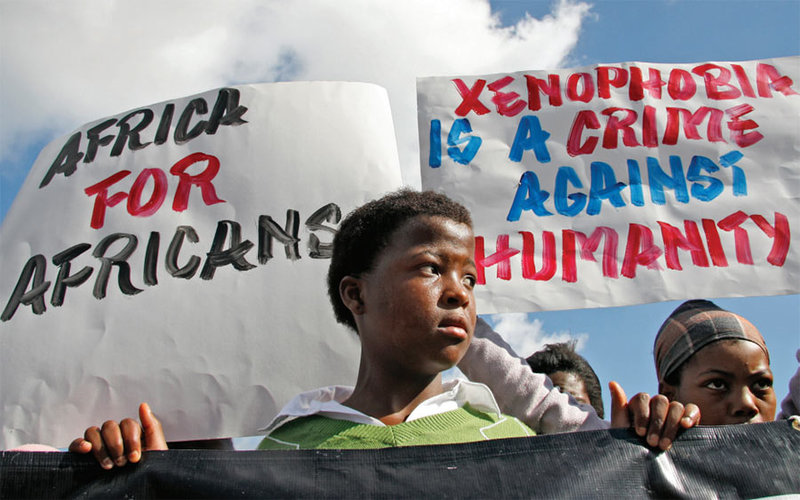 AFRICA
FOR
AFRICANS
XENOPHOBIA
IS A CRIME
AGAINST
HUMANITY